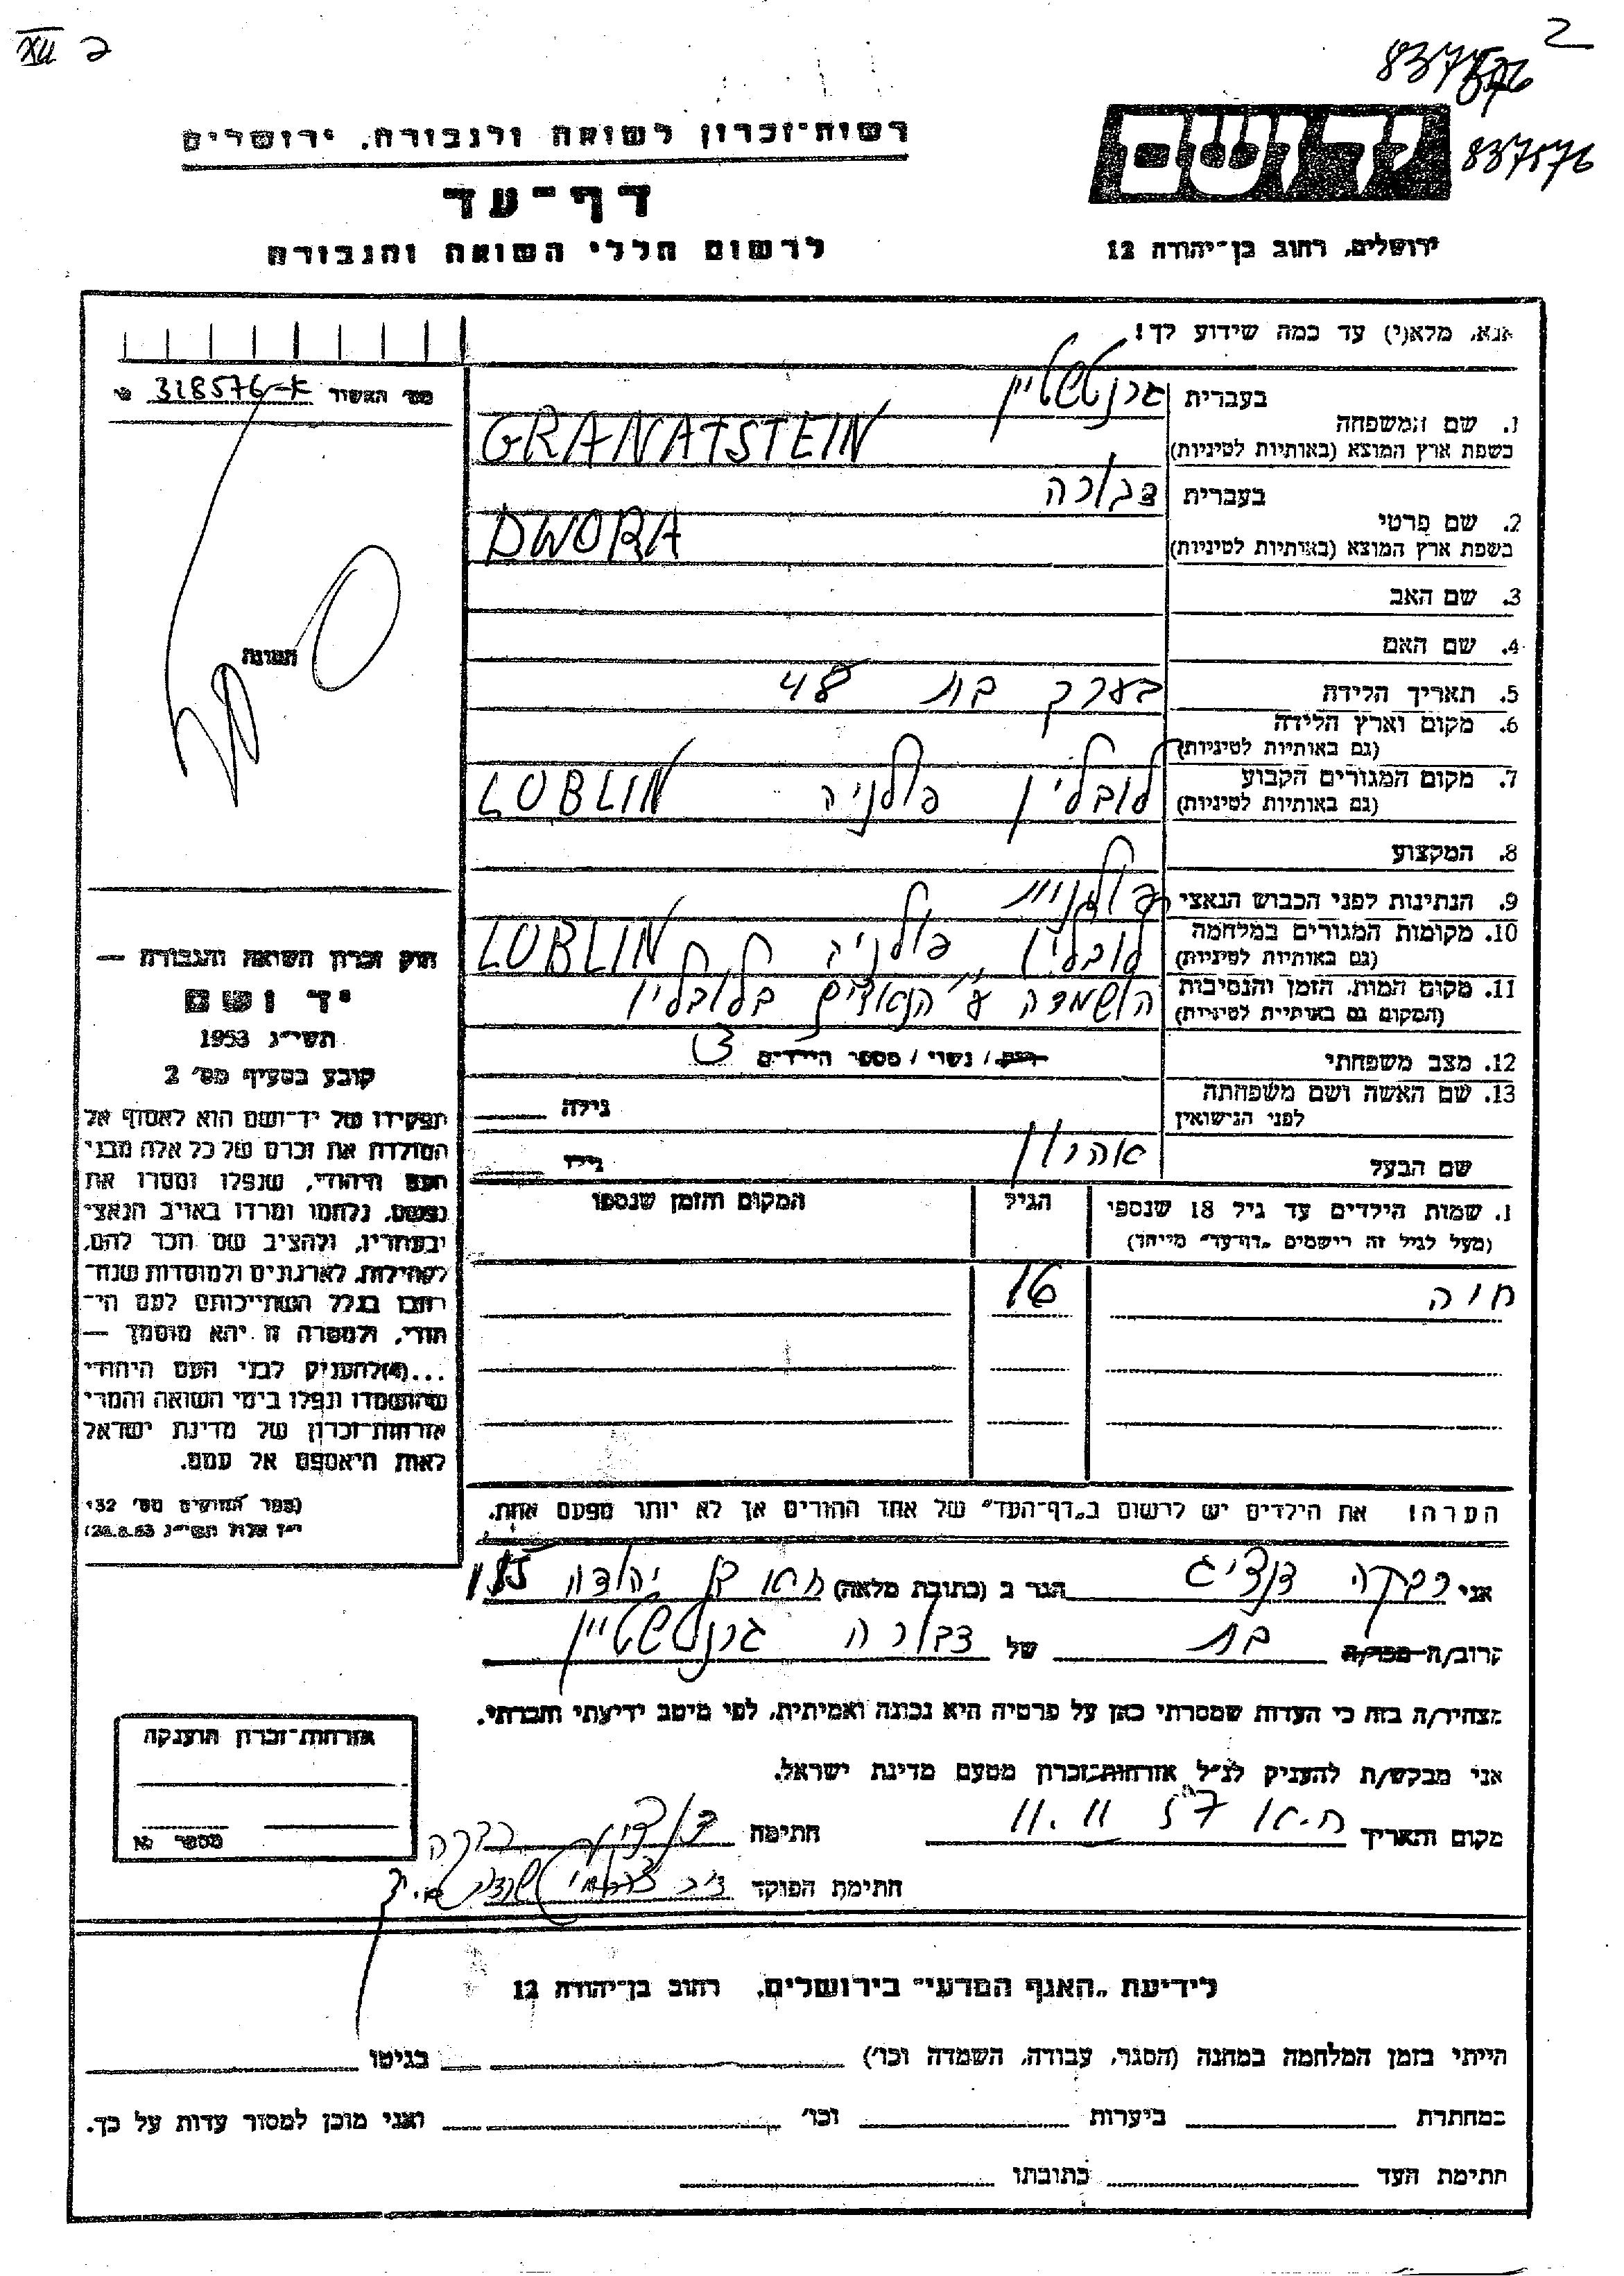 XII 2
2
837576
837576
רשות־זכרון לשואה ולגבורה, ירושלים
יד ושם
דף־עד
לרשום חללי השואה והגבורה
ירושלים, רחוב בן־יהודה 12
אנא, מלא(י) עד כמה שידוע לך!
מס׳ האשור 318576-א
תמונה
בעברית גרנטשטיין
1. שם המשפחה
בשפת ארץ המוצא (באותיות לטיניות) GRANATSTEIN
בעברית דבורה
2. שם פרטי
בשפת ארץ המוצא (באותיות לטיניות) DWORA
3. שם האב
4. שם האם
5. תאריך הלידה בערך בת 48
6. מקום וארץ הלידה
(גם באותיות לטיניות)
7. מקום המגורים הקבוע לובלין פולניה LUBLIN
(גם באותיות לטיניות)
8. המקצוע
9. הנתינות לפני הכבוש הנאצי פולנית
10. מקומות המגורים במלחמה לובלין פולניה LUBLIN
(גם באותיות לטיניות)
11. מקום המות, הזמן והנסיבות הושמדה ע״י הנאצים בלובלין
(המקום גם באותיות לטיניות)
12. מצב משפחתי רווק / נשוי / מספר הילדים 3
13. שם האשה ושם משפחתה גילה
לפני הנישואין
שם הבעל אהרון גילו
1. שמות הילדים עד גיל 18 שנספו הגיל המקום והזמן שנספו
(מעל לגיל זה רישמים „דף־עד״ מייחד)
חוה 16
הערה! את הילדים יש לרשום ב„דף־העד״ של אחד ההורים אך לא יותר מפעם אחת.
חוק זכרון השואה והגבורה —
יד ושם
תשי״ג 1953
קובע בסעיף מס׳ 2
תפקידו של יד־ושם הוא לאסוף אל
המולדת את זכרם של כל אלה מבני
העם היהודי, שנפלו ומסרו את
נפשם, נלחמו ומרדו באויב הנאצי
ובעוזריו, ולהציב שם וזכר להם,
לקהילות, לארגונים ולמוסדות שנח־
רבו בגלל השתייכותם לעם הי־
הודי, ולמטרה זו יהא מוסמך —
...(4) להעניק לבני העם היהודי
שהושמדו ונפלו בימי השואה והמרי
אזרחות־זכרון של מדינת ישראל
לאות היאספם אל עמם.
(ספר החוקים מס׳ 132
י״ז אלול תשי״ג 28.8.53)
אני רבקה דנציג הגר ב (כתובת מלאה) ת״א בן יהודה 155
קרוב/ה מכר/ה בת של דבורה גרנטשטיין
מצהיר/ה בזה כי העדות שמסרתי כאן על פרטיה היא נכונה ואמיתית, לפי מיטב ידיעתי והכרתי.
אני מבקש/ת להעניק לנ״ל אזרחות־זכרון מטעם מדינת ישראל.
מקום ותאריך ת״א 11.11.57 חתימה דנציג רבקה
חתימת הפוקד
אזרחות־זכרון הוענקה
מספר א
לידיעת „האגף המדעי״ בירושלים, רחוב בן־יהודה 12
הייתי בזמן המלחמה במחנה (הסגר, עבודה, השמדה וכו׳) בגיטו
במחתרת ביערות וכו׳ ואני מוכן למסור עדות על כך.
חתימת העד כתובתו